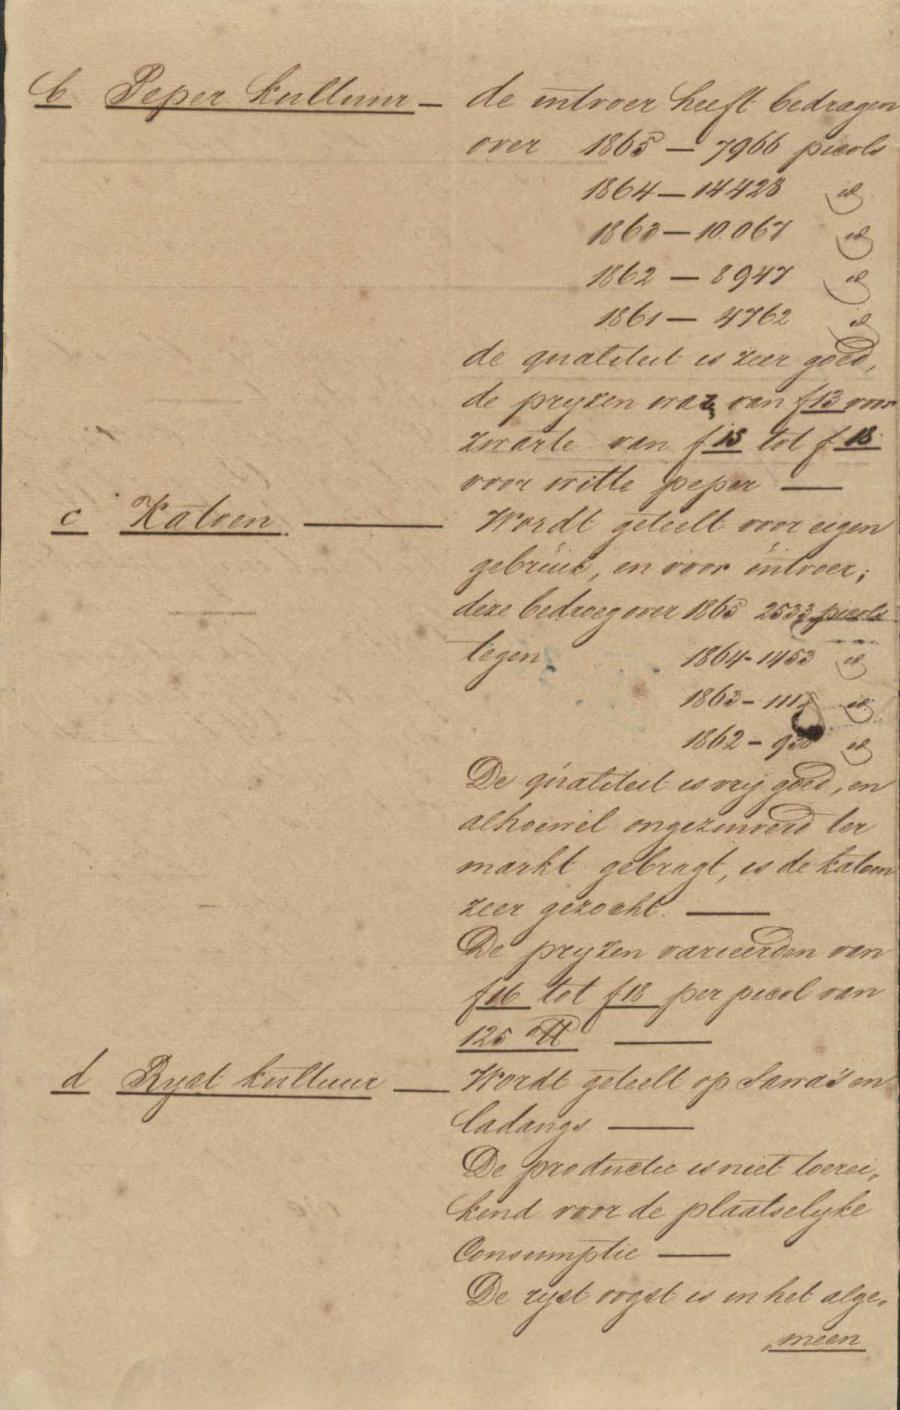 b Peper kultuur — de uitvoer heeft bedragen
over 1865 — 7966 picols
1864 — 14428 id
1863 — 10.067 id
1862 — 8947 id
1861 — 4762 id
de qualiteit is zeer goed,
de pryzen was van f 13 voor
zwarte van f 15 tot f 18
voor witte peper —
c Katoen. — Wordt geteelt voor eigen
gebruik, en voor uitvoer;
deze bedroeg over 1865 2533 picols
tegen 1864 - 1453 id
1863 - id
1862 - id
De qualiteit is vrij goed, en
alhoewel ongezuiverd ter
markt gebragt, is de katoen
zeer gezocht. —
De pryzen varieerden van
f 16 tot f 18 per picol van
125 ℔ —
d Ryst kultuur — Wordt geteelt op Sawa's en
ladangs. —
De productie is niet toerei„
kend voor de plaatselyke
Consumptie —
De ryst oogst is in het alge„
„meen